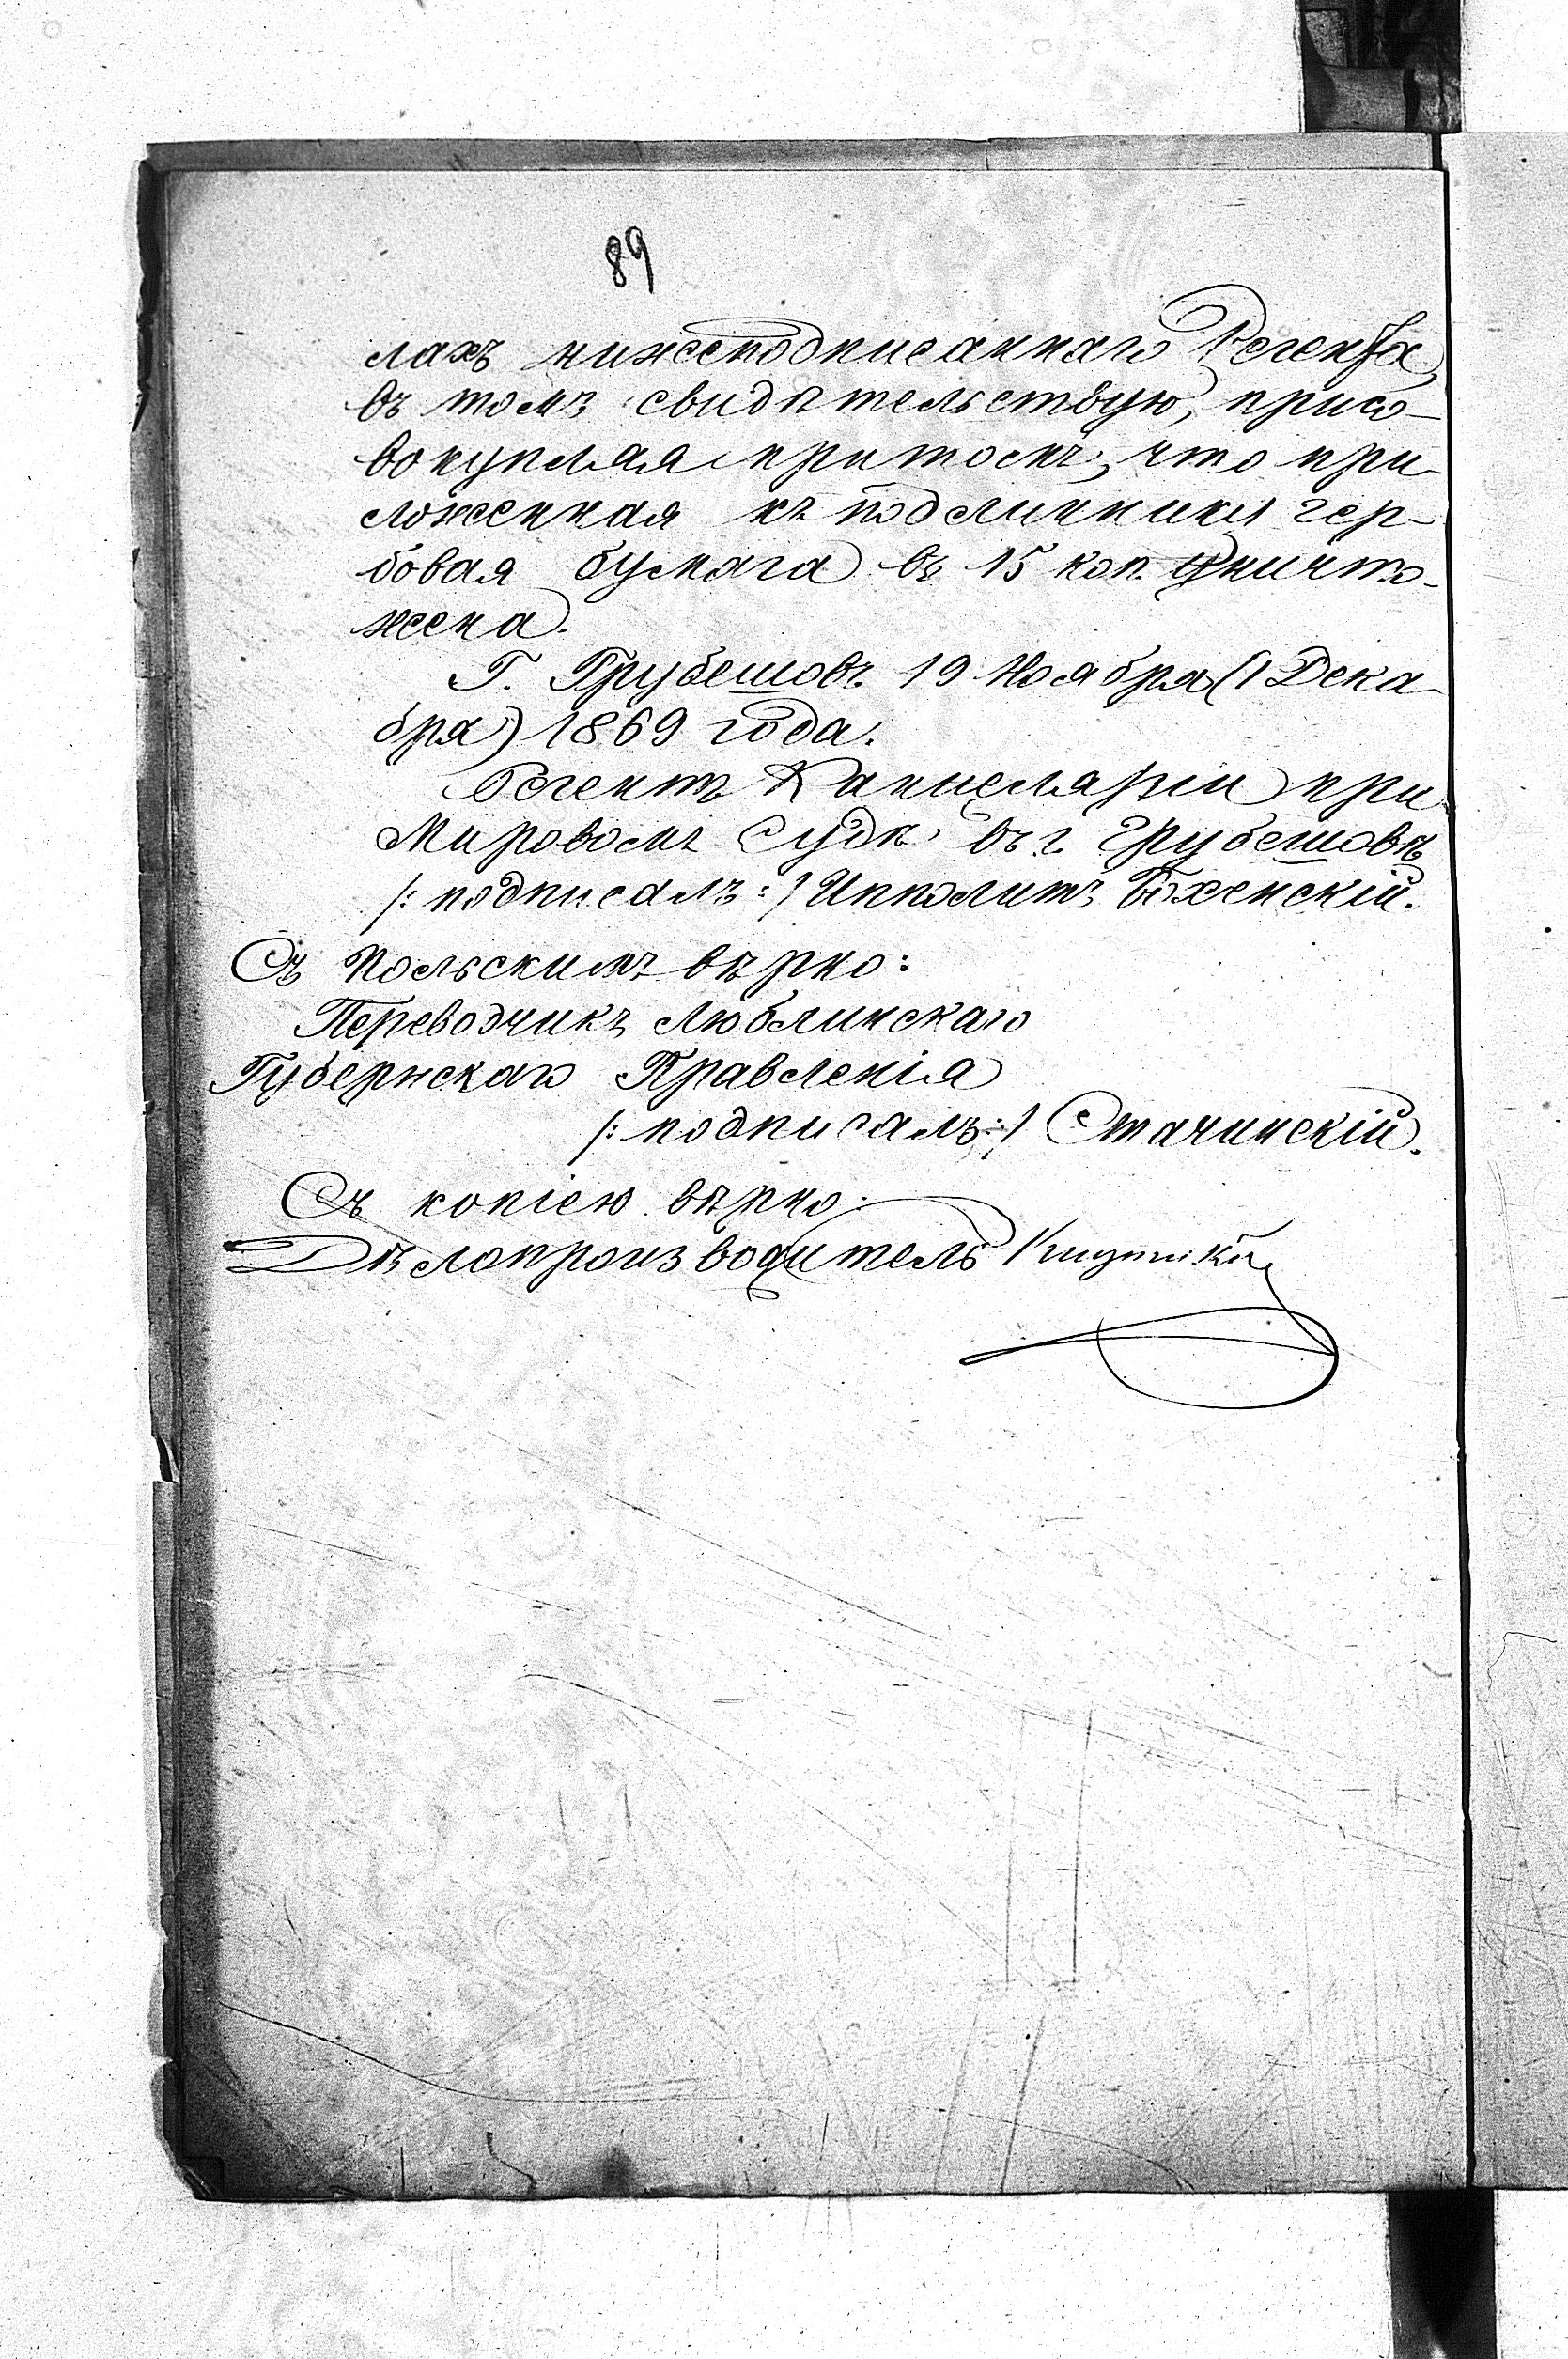 89
лахъ нижеподписаннаго Регента,
въ томъ свидѣтельствую, присо-
вокупляя притомъ, что при-
ложенная къ подлиннику гер-
бовая бумага въ 15 коп. уничто-
жена.
Г. Грубешовъ 19 Ноября (1 Дека-
бря) 1869 года.
Регентъ Канцеляріи при
Мировомъ Судѣ въ г. Грубешовѣ
/: подписалъ :/ Ипполитъ Бохенскій.
Съ Польскимъ вѣрно:
Переводчикъ Люблинскаго
Губернскаго Правленія
/: подписалъ :/ Стачинскій.
Съ копіею вѣрно:
Дѣлопроизводитель